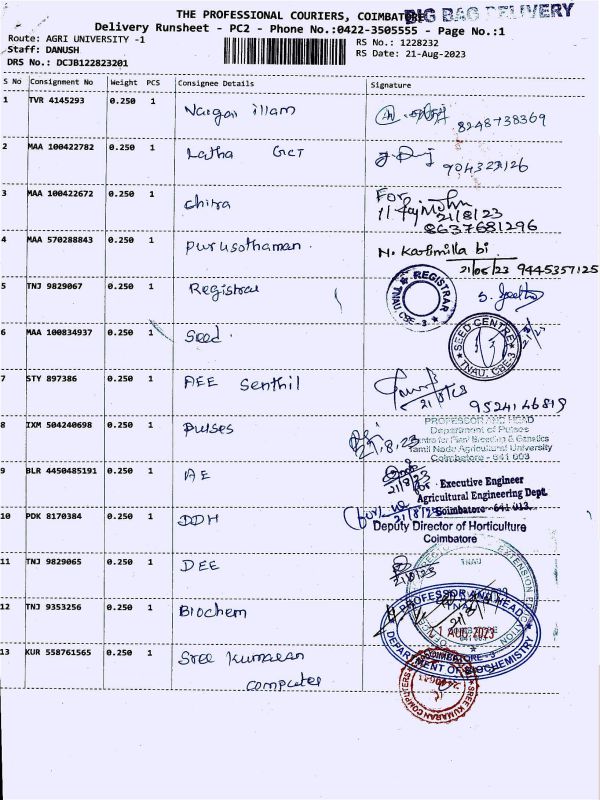 THE PROFESSIONAL COURIERS, COIMBATORE
BIG BAG DELIVERY
Delivery Runsheet - PC2 - Phone No.:0422-3505555 - Page No.:1
Route: AGRI UNIVERSITY -1
RS No.: 1228232
Staff: DANUSH
RS Date: 21-Aug-2023
DRS No.: DCJB122823201
S No Consignment No Weight PCS Consignee Details Signature
1 TVR 4145293 0.250 1 Nargan illam 8248738369
2 MAA 100422782 0.250 1 Latha GCT
3 MAA 100422672 0.250 1 chitra For
21/8/23
8637681296
4 MAA 570288843 0.250 1 purusothaman. N. Karimilla bi
21/08/23 9445357125
5 TNJ 9829067 0.250 1 Registrar
REGISTRAR TNAU CBE-3
6 MAA 100834937 0.250 1 Seed.
SEED CENTRE TNAU, CBE-3
7 STY 897386 0.250 1 AEE Senthil
21/8/23 9524146819
8 IXM 504240698 0.250 1 pulses 21.8.23
PROFESSOR AND HEAD
Department of Pulses
Centre for Plant Breeding & Genetics
Tamil Nadu Agricultural University
Coimbatore - 641 003
9 BLR 4450485191 0.250 1 AE 21/8/23
Executive Engineer
Agricultural Engineering Dept.
Coimbatore - 641 013.
10 PDK 8170384 0.250 1 DDH 21/8/23
Deputy Director of Horticulture
Coimbatore
11 TNJ 9829065 0.250 1 DEE 21/8/23
TNAU
EXTENSION
12 TNJ 9353256 0.250 1 Biochem
PROFESSOR AND HEAD
TNAU
21 AUG 2023
COIMBATORE - 3
DEPARTMENT OF BIOCHEMISTRY
13 KUR 558761565 0.250 1 Sree Kumaran
computer
SREE KUMARAN COMPUTERS